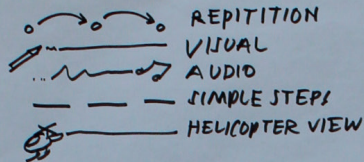 REPITITION
VISUAL
AUDIO
SIMPLE STEPS
HELICOPTER VIEW